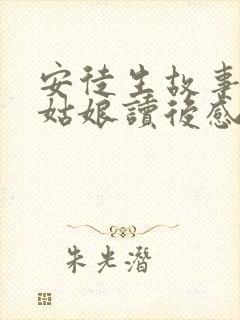 安徒生故事
姑娘讀後感
朱光潛